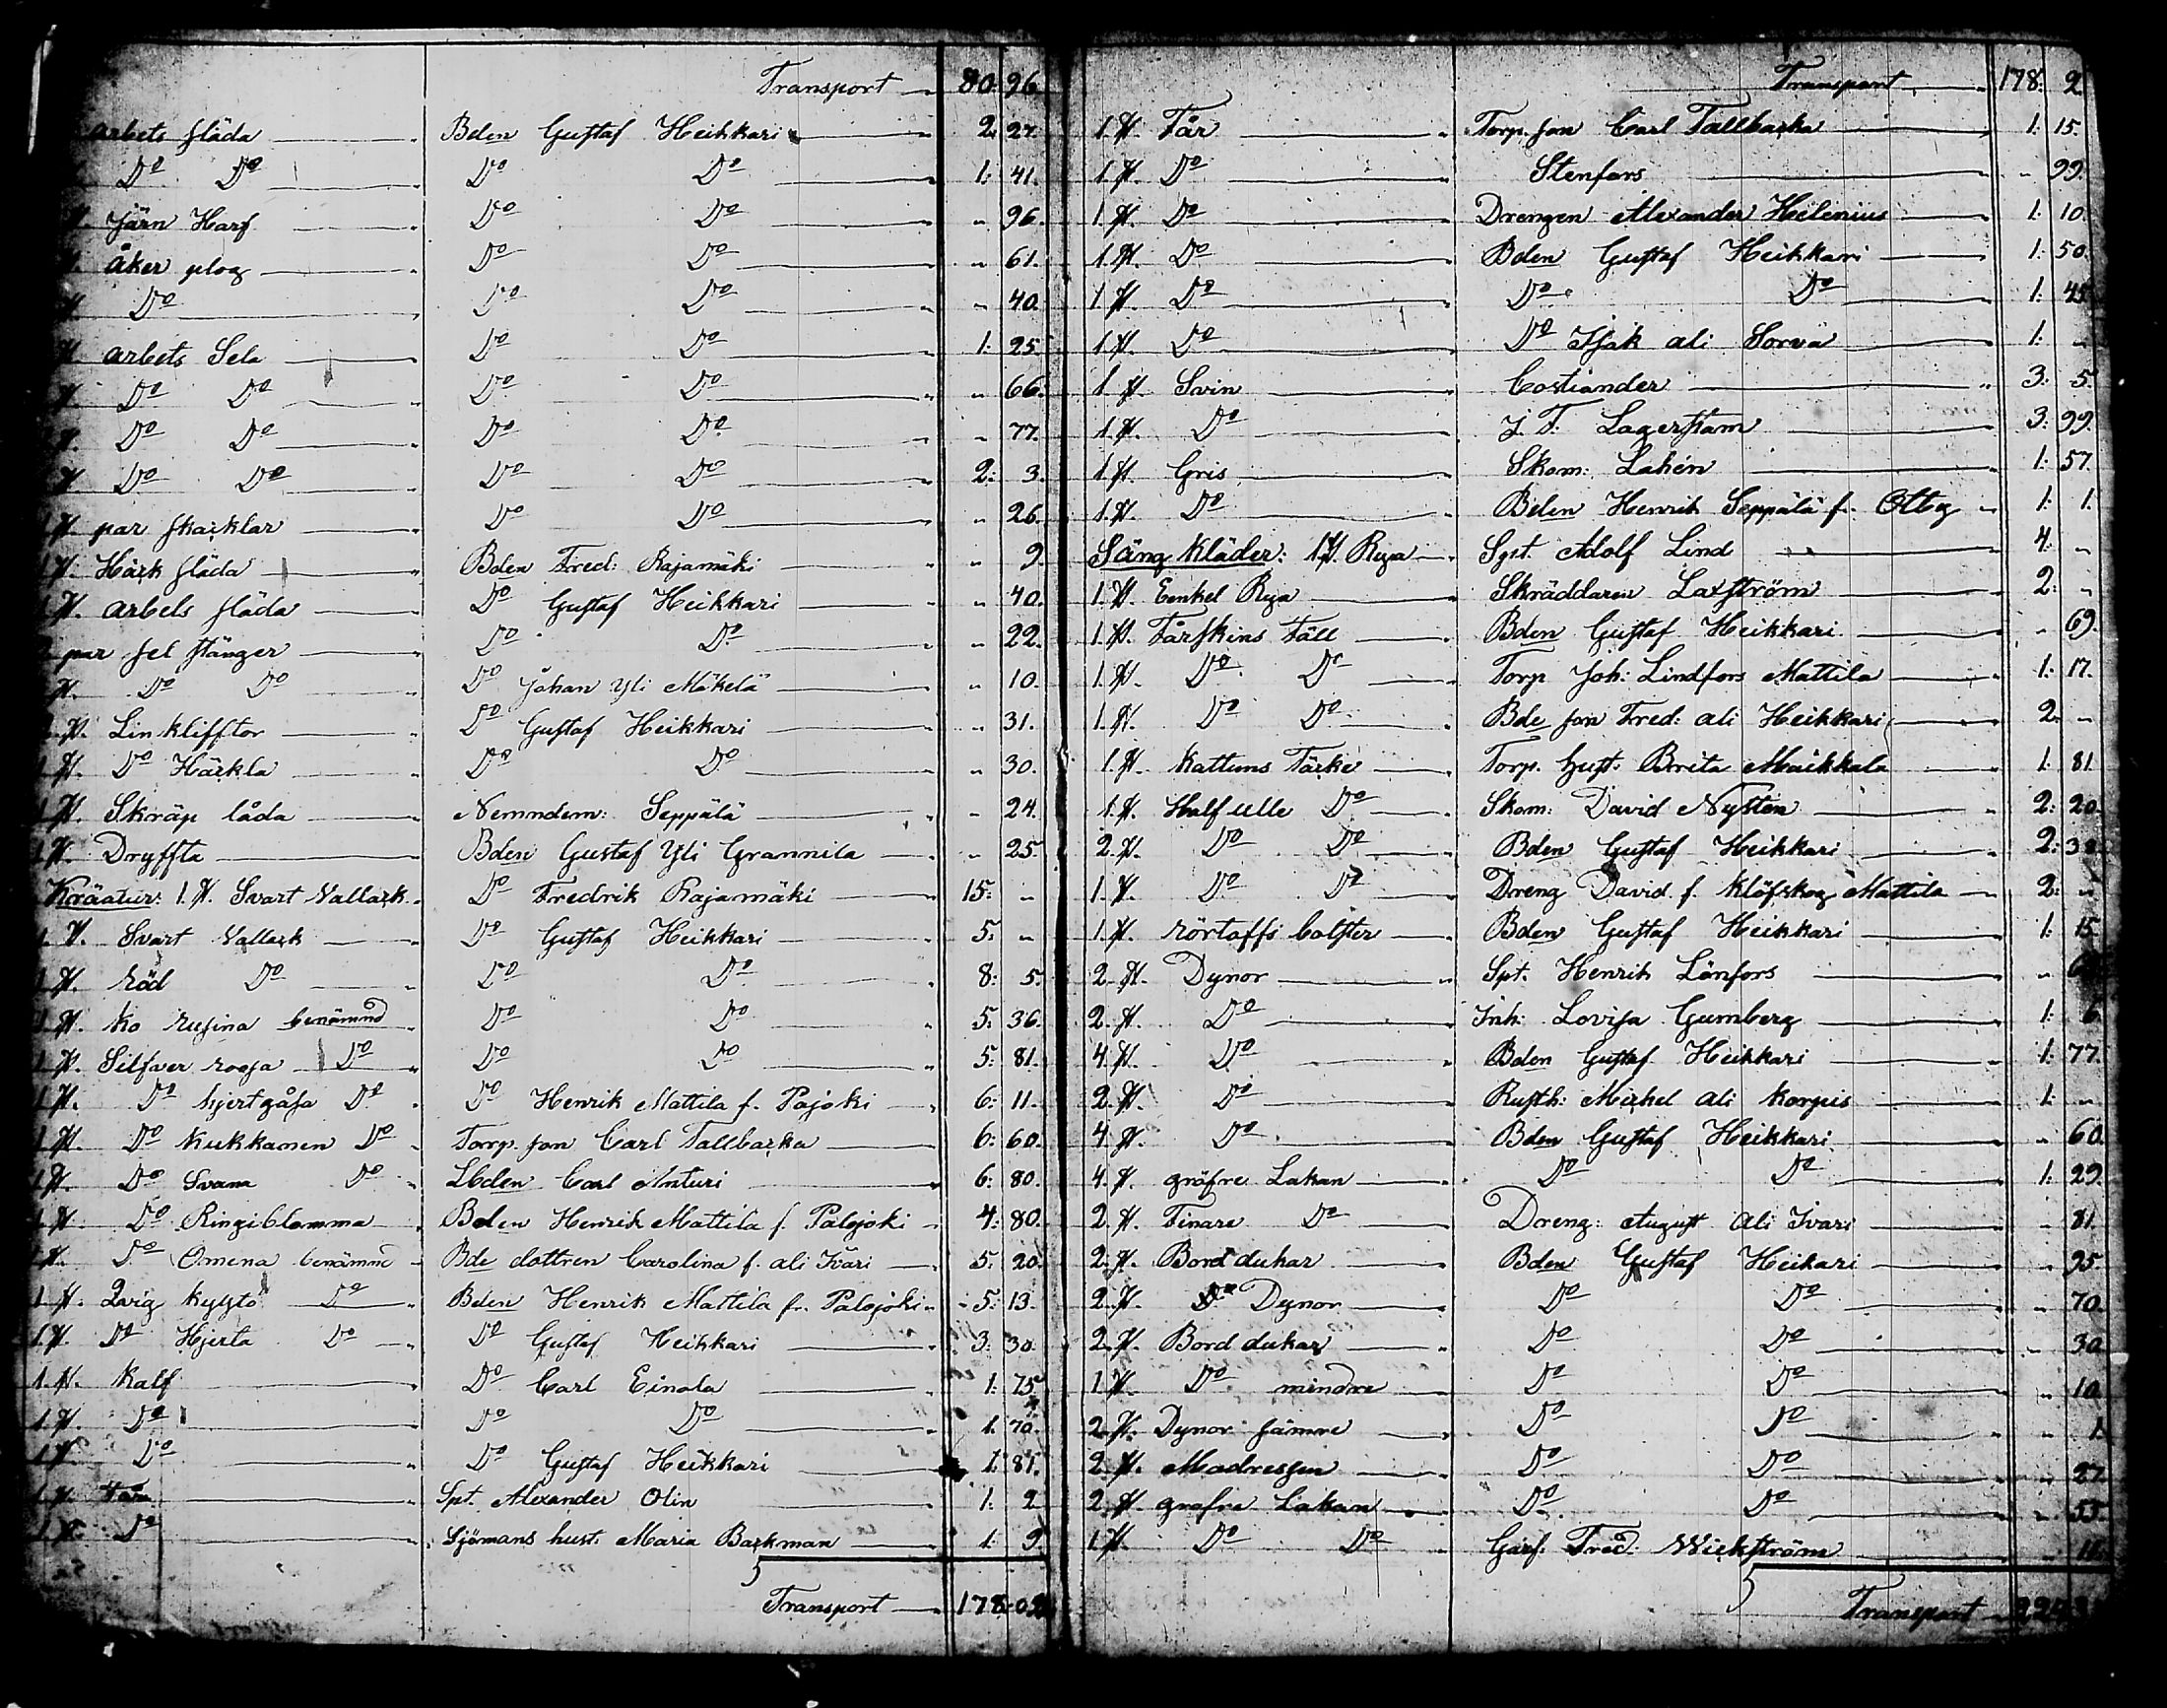 Transport 80: 96.
arbets släda Bden Gustaf Heikkari 2. 27.
Do Do Do Do 1: 41.
Järn Harf Do Do " 96.
åker plog Do Do " 61.
Do Do Do " 40.
arbets Sela Do Do 1: 25.
Do Do Do Do " 66.
Do Do Do Do " 77.
Do Do Do Do 2: 3.
par skacklar Do Do " 26.
1 st. Häck släda Bden Fred: Rajamäki " 9.
1 st. arbets släda Do Gustaf Heikkari " 40.
par sel stänger Do Do " 22.
st. Do Do Do Johan Yli Mäkelä " 10.
1 st. Lin klifftor Do Gustaf Heikkari " 31.
1 st. Do Häckla Do Do " 30.
1 st. Skräp låda Nemndem: Seppälä " 24.
1 st. Dryffta Bden Gustaf Yli Grannila " 25.
Kräatur: 1. st. Svart Vallack. Do Fredrik Rajamäki 15: "
1. st. Svart Vallack Do Gustaf Heikkari 5. "
1 st. Röd Do Do Do 8: 5.
1 st. Ko Rusina benämnd Do Do 5. 36.
1 st. Silfver roosa Do Do Do 5: 81.
1 st. Do hjertgåsa Do Do Henrik Mattila f. Pajoki 6: 11.
1 st. Do Kukkanen Do Torp. son Carl Tallbacka 6: 60.
1 st. Do Svana Do Lbden Carl Anturi 6: 80.
1 st. Do Ringiblomma Bden Henrik Mattila f. Palojoki 4: 80.
1 st. Do Omena benämnd Bde dottren Carolina f. ali Ivari 5. 20.
1 st. Qvig Kyytö Do Bden Henrik Mattila fr. Palojoki 5: 13.
1. st. Do Hjerta Do Do Gustaf Heikkari 3: 30.
1. st. Kalf Do Carl Einola 1: 75.
1. st. Do Do Do 1. 70.
1 st. Do Do Gustaf Heikkari 1: 81.
1 st. Får Spt. Alexander Olin 1: 2
1 st. Do Sjömans hust. Maria Backman 1: 9.
Transport 178: 02
Transport 178: 2
1. st. Får Torp. son Carl Tallbacka 1: 15.
1. st. Do Stenfors " 99.
1. st. Do Drengen Alexander Helenius 1: 10.
1. st. Do Bden Gustaf Heikkari 1: 50.
1 st. Do Do Do 1: 45.
1 st. Do Do Isak ali Sorva 1: "
1 st. Svin Costiander 3: 5.
1. st. Do J. F. Lagerstam 3: 99.
1 st. Gris Skom: Lahén 1: 57.
1. st. Do Bden Henrik Seppälä f. Otby 1: 1.
Säng Kläder: 1 st. Rya Spt. Adolf Lind 4: "
1. st. Eenkel Rya Skräddaren Laxström 2: "
1. st. Fårskins Fäll Bden Gustaf Heikkari " 69.
1. st. Do Do Torp Joh: Lindfors Mattila 1: 17.
1. st. Do Do Bde son Fred: ali Heikkari 2. "
1. st. Kattuns Täcke Torp. hust: Brita Maikkala 1. 81.
1. st. Half ulle Do Skom: David Nysten 2: 20.
2. st. Do Do Bden Gustaf Heikkari 2: 38.
1. st. Do Do Dreng David f. Klöfskog Mattila 2: "
1. st. rörtoffs bolster Bden Gustaf Heikkari 1: 15.
2. st. Dynor Spt. Henrik Lönfors "
2. st. Do Inh: Lovisa Gumberg 1: 6.
4. st. Do Bden Gustaf Heikkari 1: 77.
2. st. Do Rusth: Mickel ali Korpis 1: "
4. st. Do Bden Gustaf Heikkari " 60.
4. st. gräfre Lakan Do Do 1: 29.
2. st. Finare Do Dreng: August ali Ivari " 81.
2. st. Bord dukar Bden Gustaf Heikari " 95.
2. st. Do Dynor Do Do " 70.
2. st. Bord dukar Do Do " 30.
1 st. Do mindre Do Do " 10
2. st. Dynor sämre Do Do " 1.
2. st. Madressen Do Do " 27.
2 st. grofre Lakan Do Do " 55.
1 st. Do Do Garf. Fred. Wickström " 11.
Transport